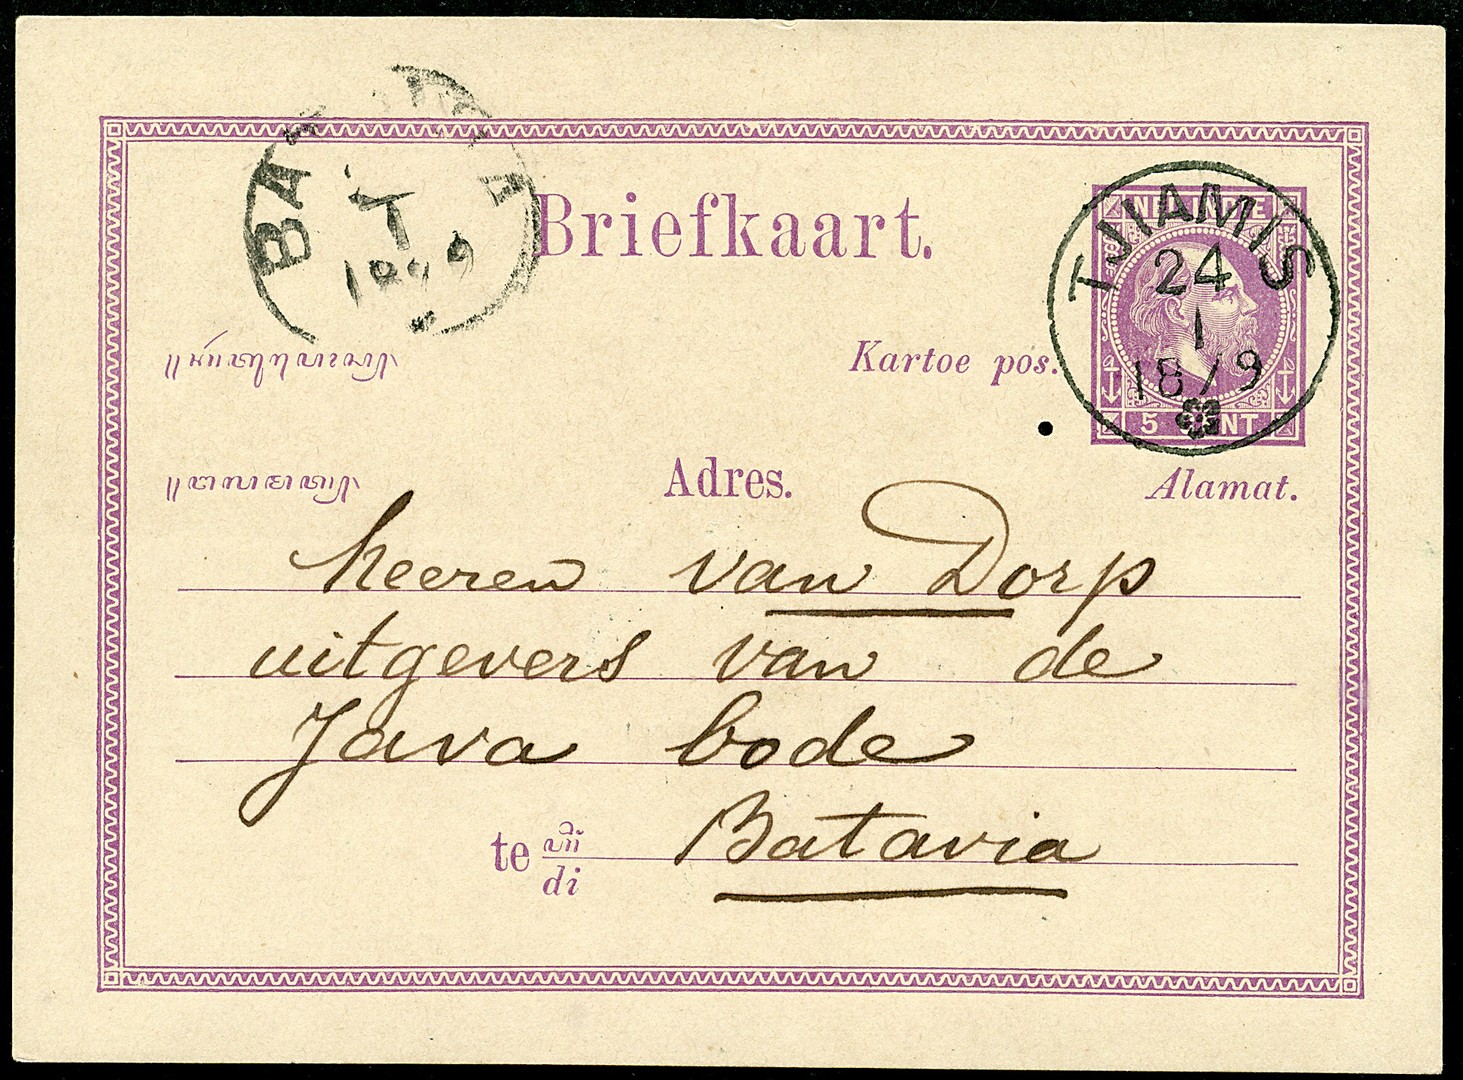 BATAVIA
1
1879
Briefkaart.
TJIAMIS
24
1
1879
NED. INDIE
5 CENT
Kartoe pos.
Adres.
Alamat.
heeren van Dorp
uitgevers van de
Java bode
te di Batavia